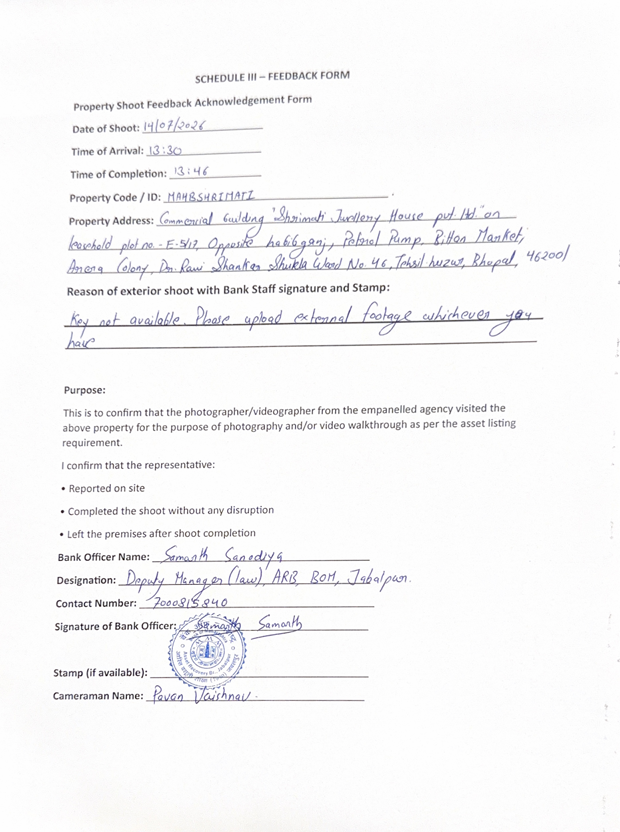 SCHEDULE III – FEEDBACK FORM
Property Shoot Feedback Acknowledgement Form
Date of Shoot: 14/07/2026
Time of Arrival: 13:30
Time of Completion: 13:46
Property Code / ID: MAHBSHRIMATI
Property Address: Commercial building "Shrimati Jwellery House pvt. ltd." on
leasehold plot no - E-5/17, Opposite habibganj, Petrol Pump, Bittan Market,
Arera Colony, Dr. Ravi Shankar Shukla Ward No. 46, Tehsil huzur, Bhopal, 462001
Reason of exterior shoot with Bank Staff signature and Stamp:
Key not available. Please upload external footage whichever you
have
Purpose:
This is to confirm that the photographer/videographer from the empanelled agency visited the
above property for the purpose of photography and/or video walkthrough as per the asset listing
requirement.
I confirm that the representative:
• Reported on site
• Completed the shoot without any disruption
• Left the premises after shoot completion
Bank Officer Name: Samarth Sanodiya
Designation: Deputy Manager (law), ARB, BOM, Jabalpur.
Contact Number: 7000815840
Signature of Bank Officer: Samarth Samarth
Stamp (if available):
Cameraman Name: Pavan Vaishnav.